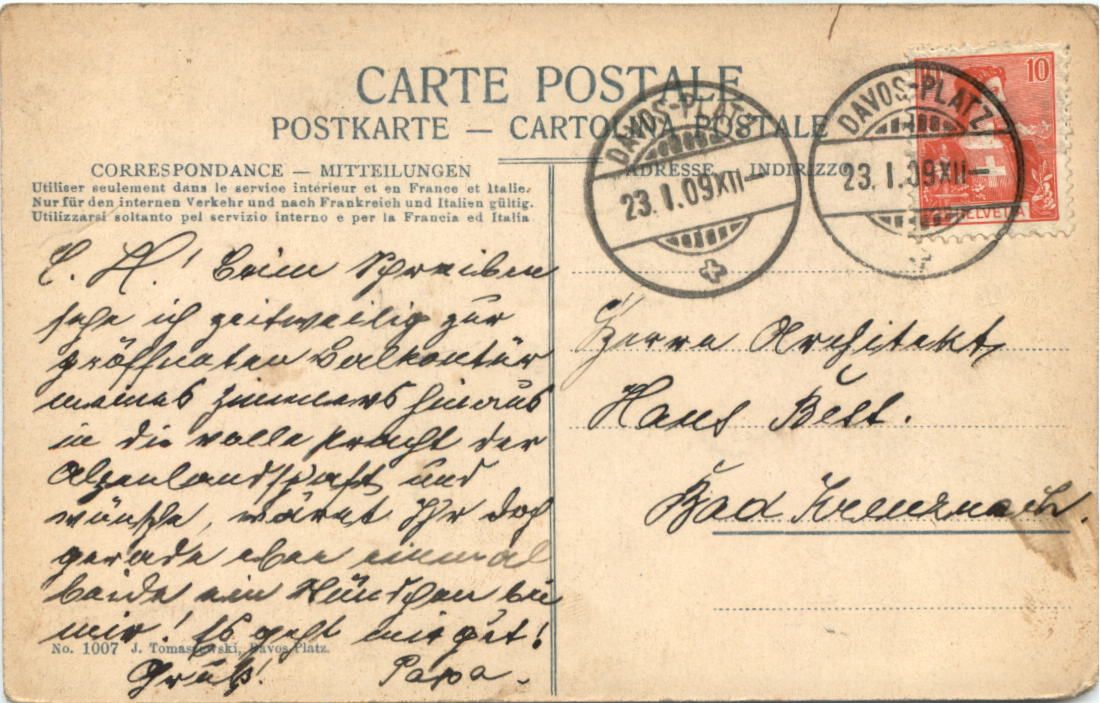 CARTE POSTALE
POSTKARTE — CARTOLINA POSTALE
CORRESPONDANCE — MITTEILUNGEN
Utiliser seulement dans le service intérieur et en France et Italie.
Nur für den internen Verkehr und nach Frankreich und Italien gültig.
Utilizzarsi soltanto pel servizio interno e per la Francia ed Italia
ADRESSE INDIRIZZO
DAVOS-PLATZ
23. I. 09 XII—
DAVOS-PLATZ
23. I. 09 XII—
10
HELVETIA
L. H! Beim Schreiben
sehe ich zeitweilig zur
geöffneten Balkontür
meines Zimmers hinaus
in die volle Pracht der
Alpenlandschaft und
wünsche, wäret Ihr doch
gerade eben einmal
beide ein Stündchen bei
mir! Es geht mir gut!
Gruß! Papa.
Herrn Architekt
Hans Best.
Bad Kreuznach.
No. 1007 J. Tomaszewski, Davos-Platz.